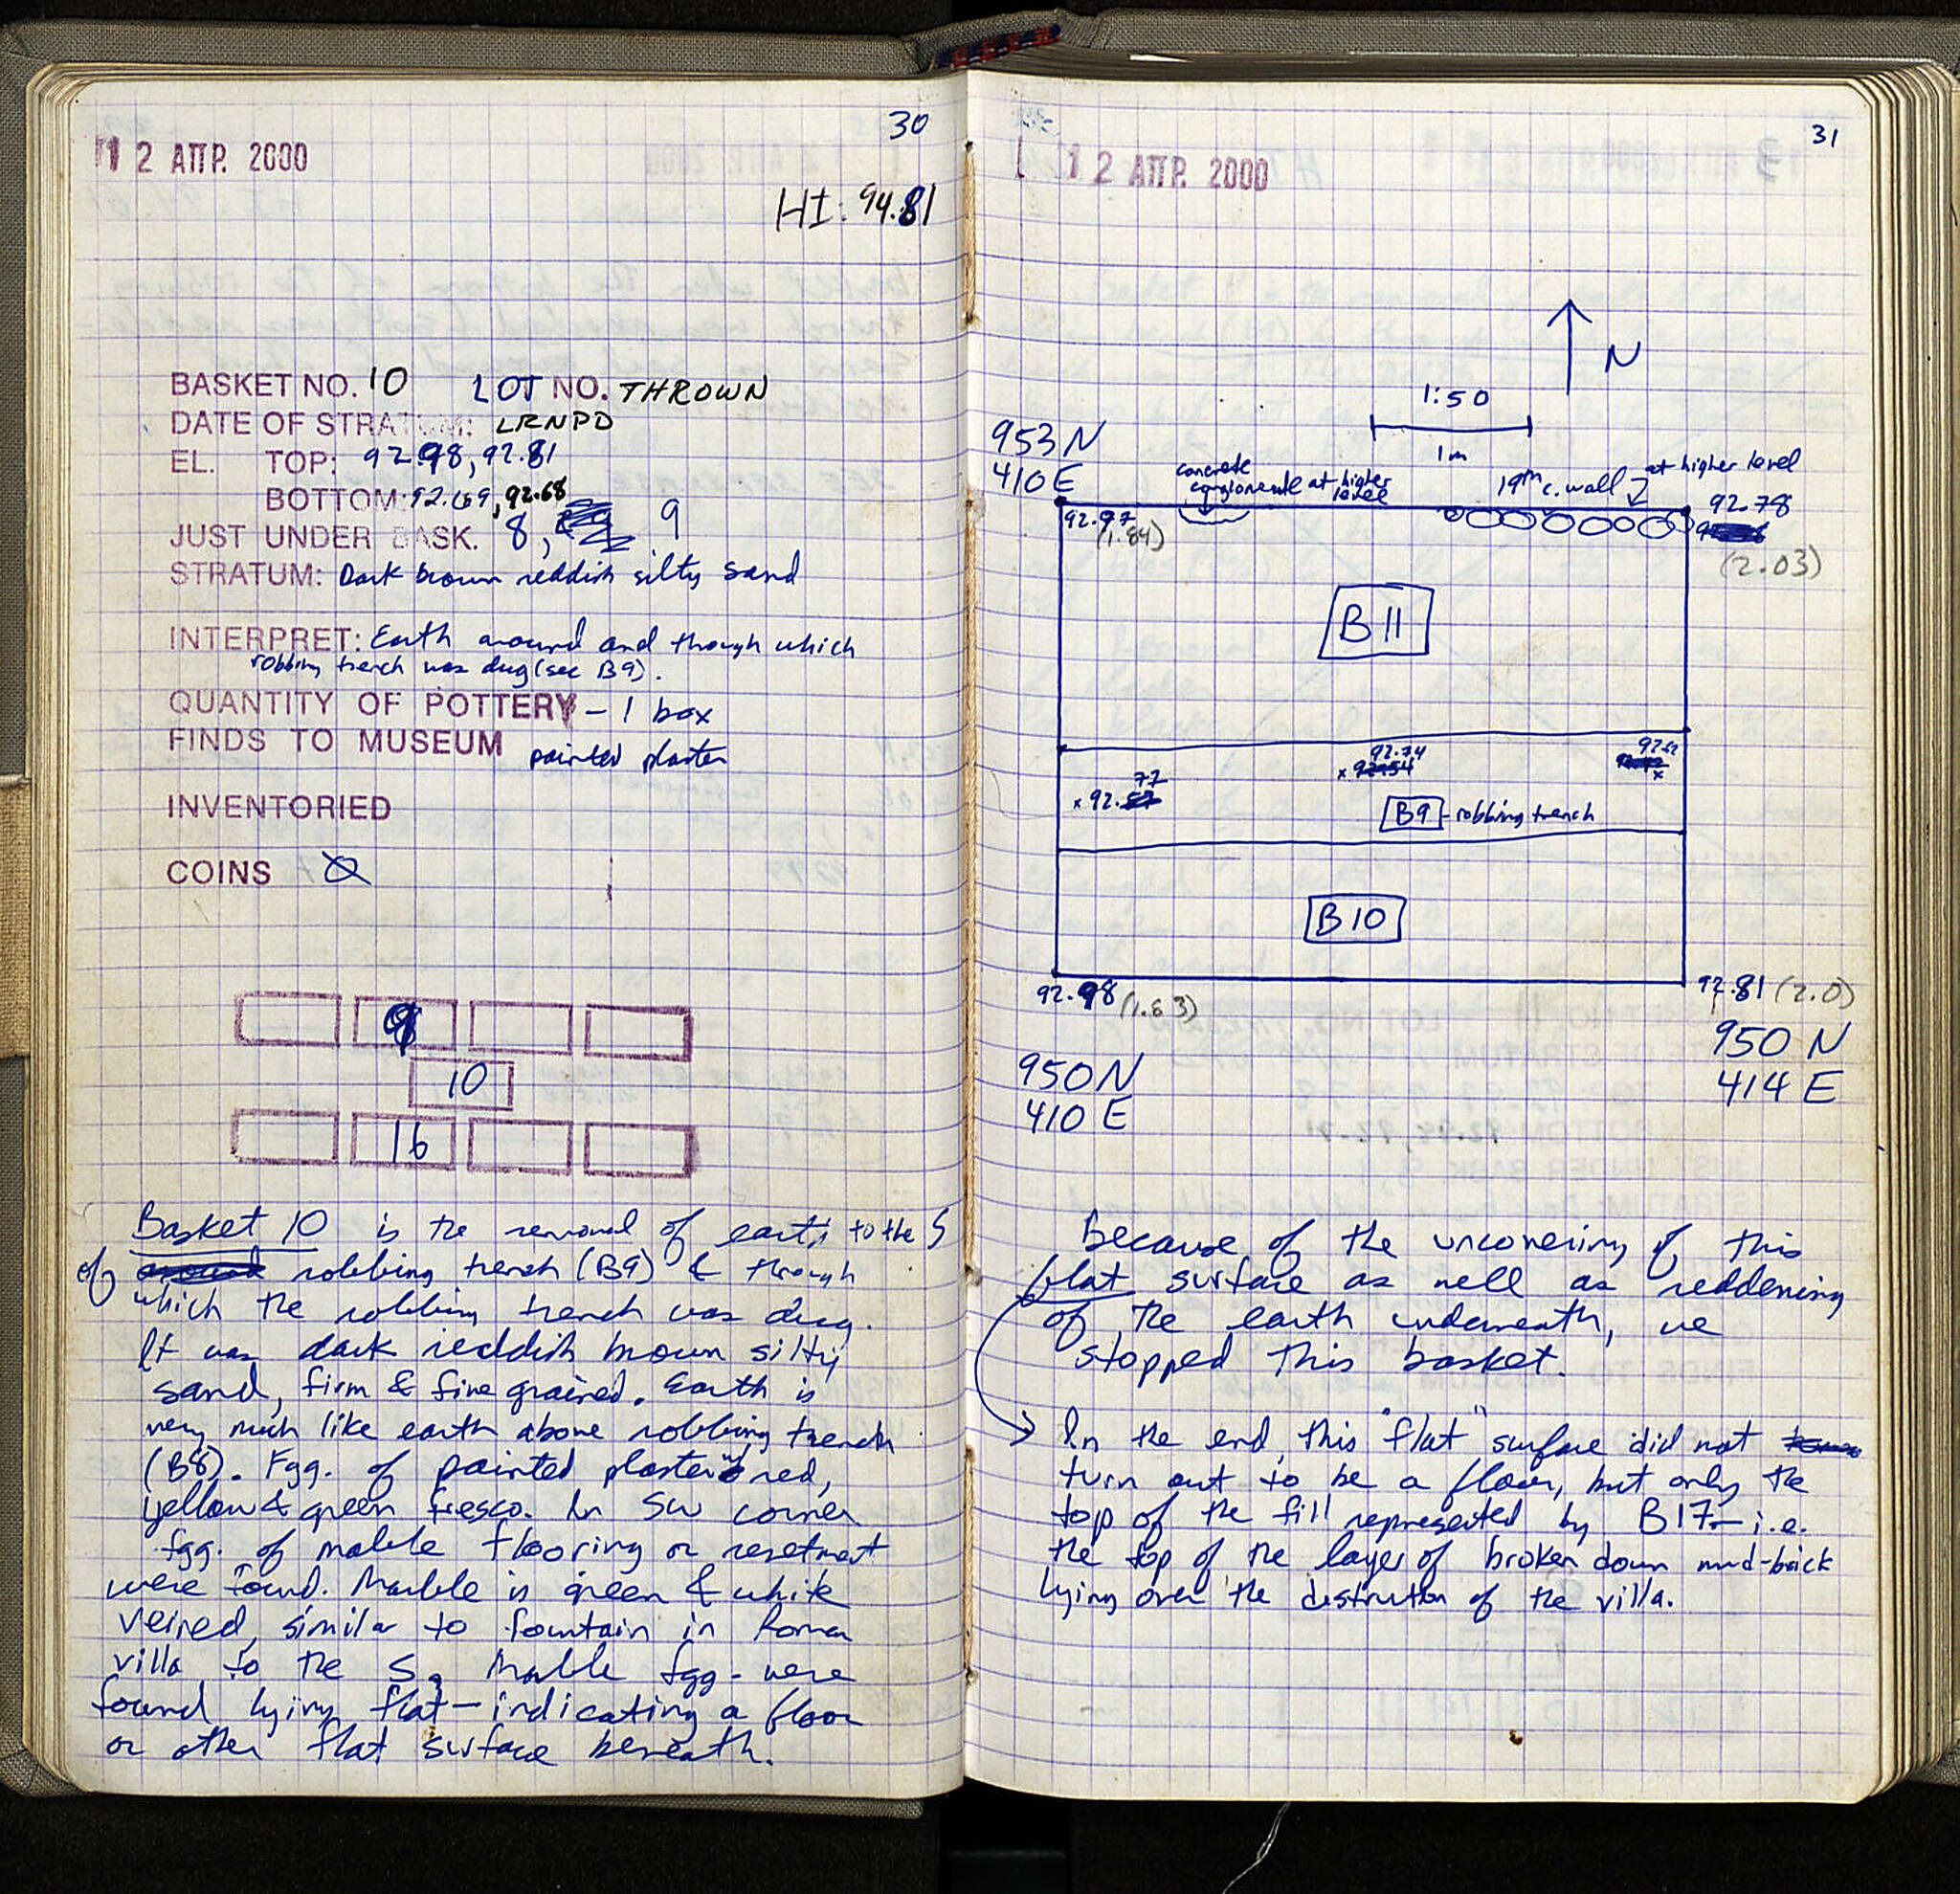 30
12 ΑΠΡ. 2000
HI: 94.81
BASKET NO. 10 LOT NO. THROWN
DATE OF STRATUM: LRNPD
EL. TOP: 92.98, 92.81
BOTTOM: 92.69, 92.68
JUST UNDER BASK. 8, 9
STRATUM: Dark brown reddish silty sand
INTERPRET: Earth around and though which
robbing trench was dug (see B9).
QUANTITY OF POTTERY – 1 box
FINDS TO MUSEUM painted plaster
INVENTORIED
COINS Ø
9
10
16
Basket 10 is the removal of earth to the S
of around robbing trench (B9) & through
which the robbing trench was dug.
It was dark reddish brown silty
sand, firm & fine grained. Earth is
very much like earth above robbing trench
(B8). Fgg. of painted plaster in red,
yellow & green fresco. In SW corner
fgg. of marble flooring or revetment
were found. Marble is green & white
veined, similar to fountain in Roman
villa to the S. Marble fgg. were
found lying flat – indicating a floor
or other flat surface beneath.
31
12 ΑΠΡ. 2000
N
1:50
1m
953 N
410 E
concrete
conglomerate at higher
level
19th c. wall at higher level
92.78
(2.03)
92.97
(1.84)
B 11
92.74
92.54
92.62
77
x 92.57
B9 - robbing trench
B 10
92.98 (1.83)
92.81 (2.0)
950 N
414 E
950 N
410 E
Because of the uncovering of this
flat surface as well as reddening
of the earth underneath, we
stopped this basket.
→ In the end, this "flat" surface did not
turn out to be a floor, but only the
top of the fill represented by B17 – i.e.
the top of the layer of broken down mud-brick
lying over the destruction of the villa.